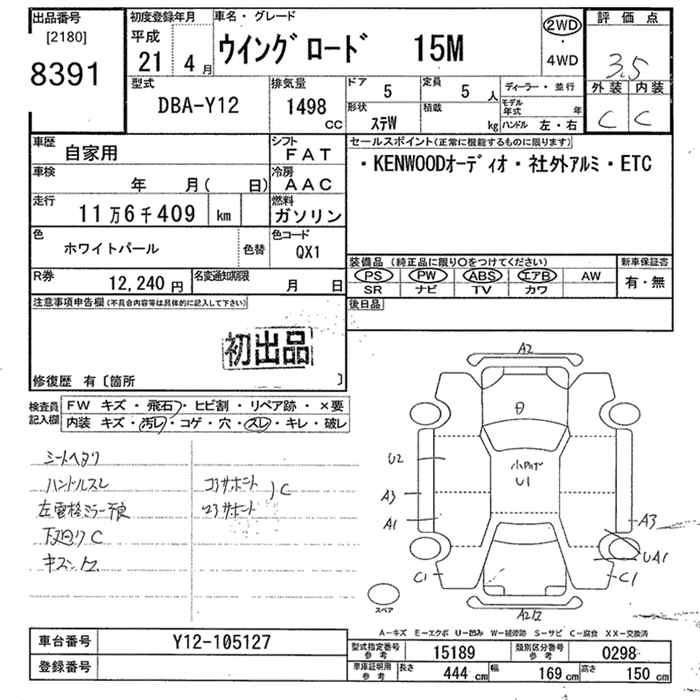 出品番号
[2180]
8391
初度登録年月
平成
21 4 月
車名・グレード
ウイングロード 15M
2WD
・
4WD
評価点
3.5
外装 内装
C C
型式
DBA-Y12
排気量
1498
CC
ドア
5
定員
5 人
形状
ステW
積載
kg
ディーラー・並行
モデル年式 年
ハンドル 左・右
車歴
自家用
シフト
FAT
車検
年 月( 日)
冷房
AAC
走行
11万6千409 km
燃料
ガソリン
色
ホワイトパール
色替
色コード
QX1
R券
12,240 円
名変通知期限
月 日
セールスポイント(正常に機能するものに限ります)
・KENWOODオーディオ・社外アルミ・ETC
装備品 (純正品に限り○をつけてください)
新車保証書
PS PW ABS エアB AW
有・無
SR ナビ TV カワ
後日品
注意事項申告欄(不具合内容等は具体的に記入して下さい)
初出品
修復歴 有〔箇所 〕
検査員記入欄
FW キズ・飛石・ヒビ割・リペア跡・×要
内装 キズ・汚レ・コゲ・穴・スレ・キレ・破レ
シートヘタリ
ハンドルスレ
コアサポート
C
下回りC
A2
U2
小凹
U1
A3
A1
A3
UA1
C1
C1
スペア
A-キズ E-エクボ U-凹み W-補修跡 S-サビ C-腐食 XX-交換済
車台番号
Y12-105127
登録番号
型式指定番号
参考
15189
類別区分番号
参考
0298
車庫証明用
参考
長さ
444 cm
幅
169 cm
高さ
150 cm